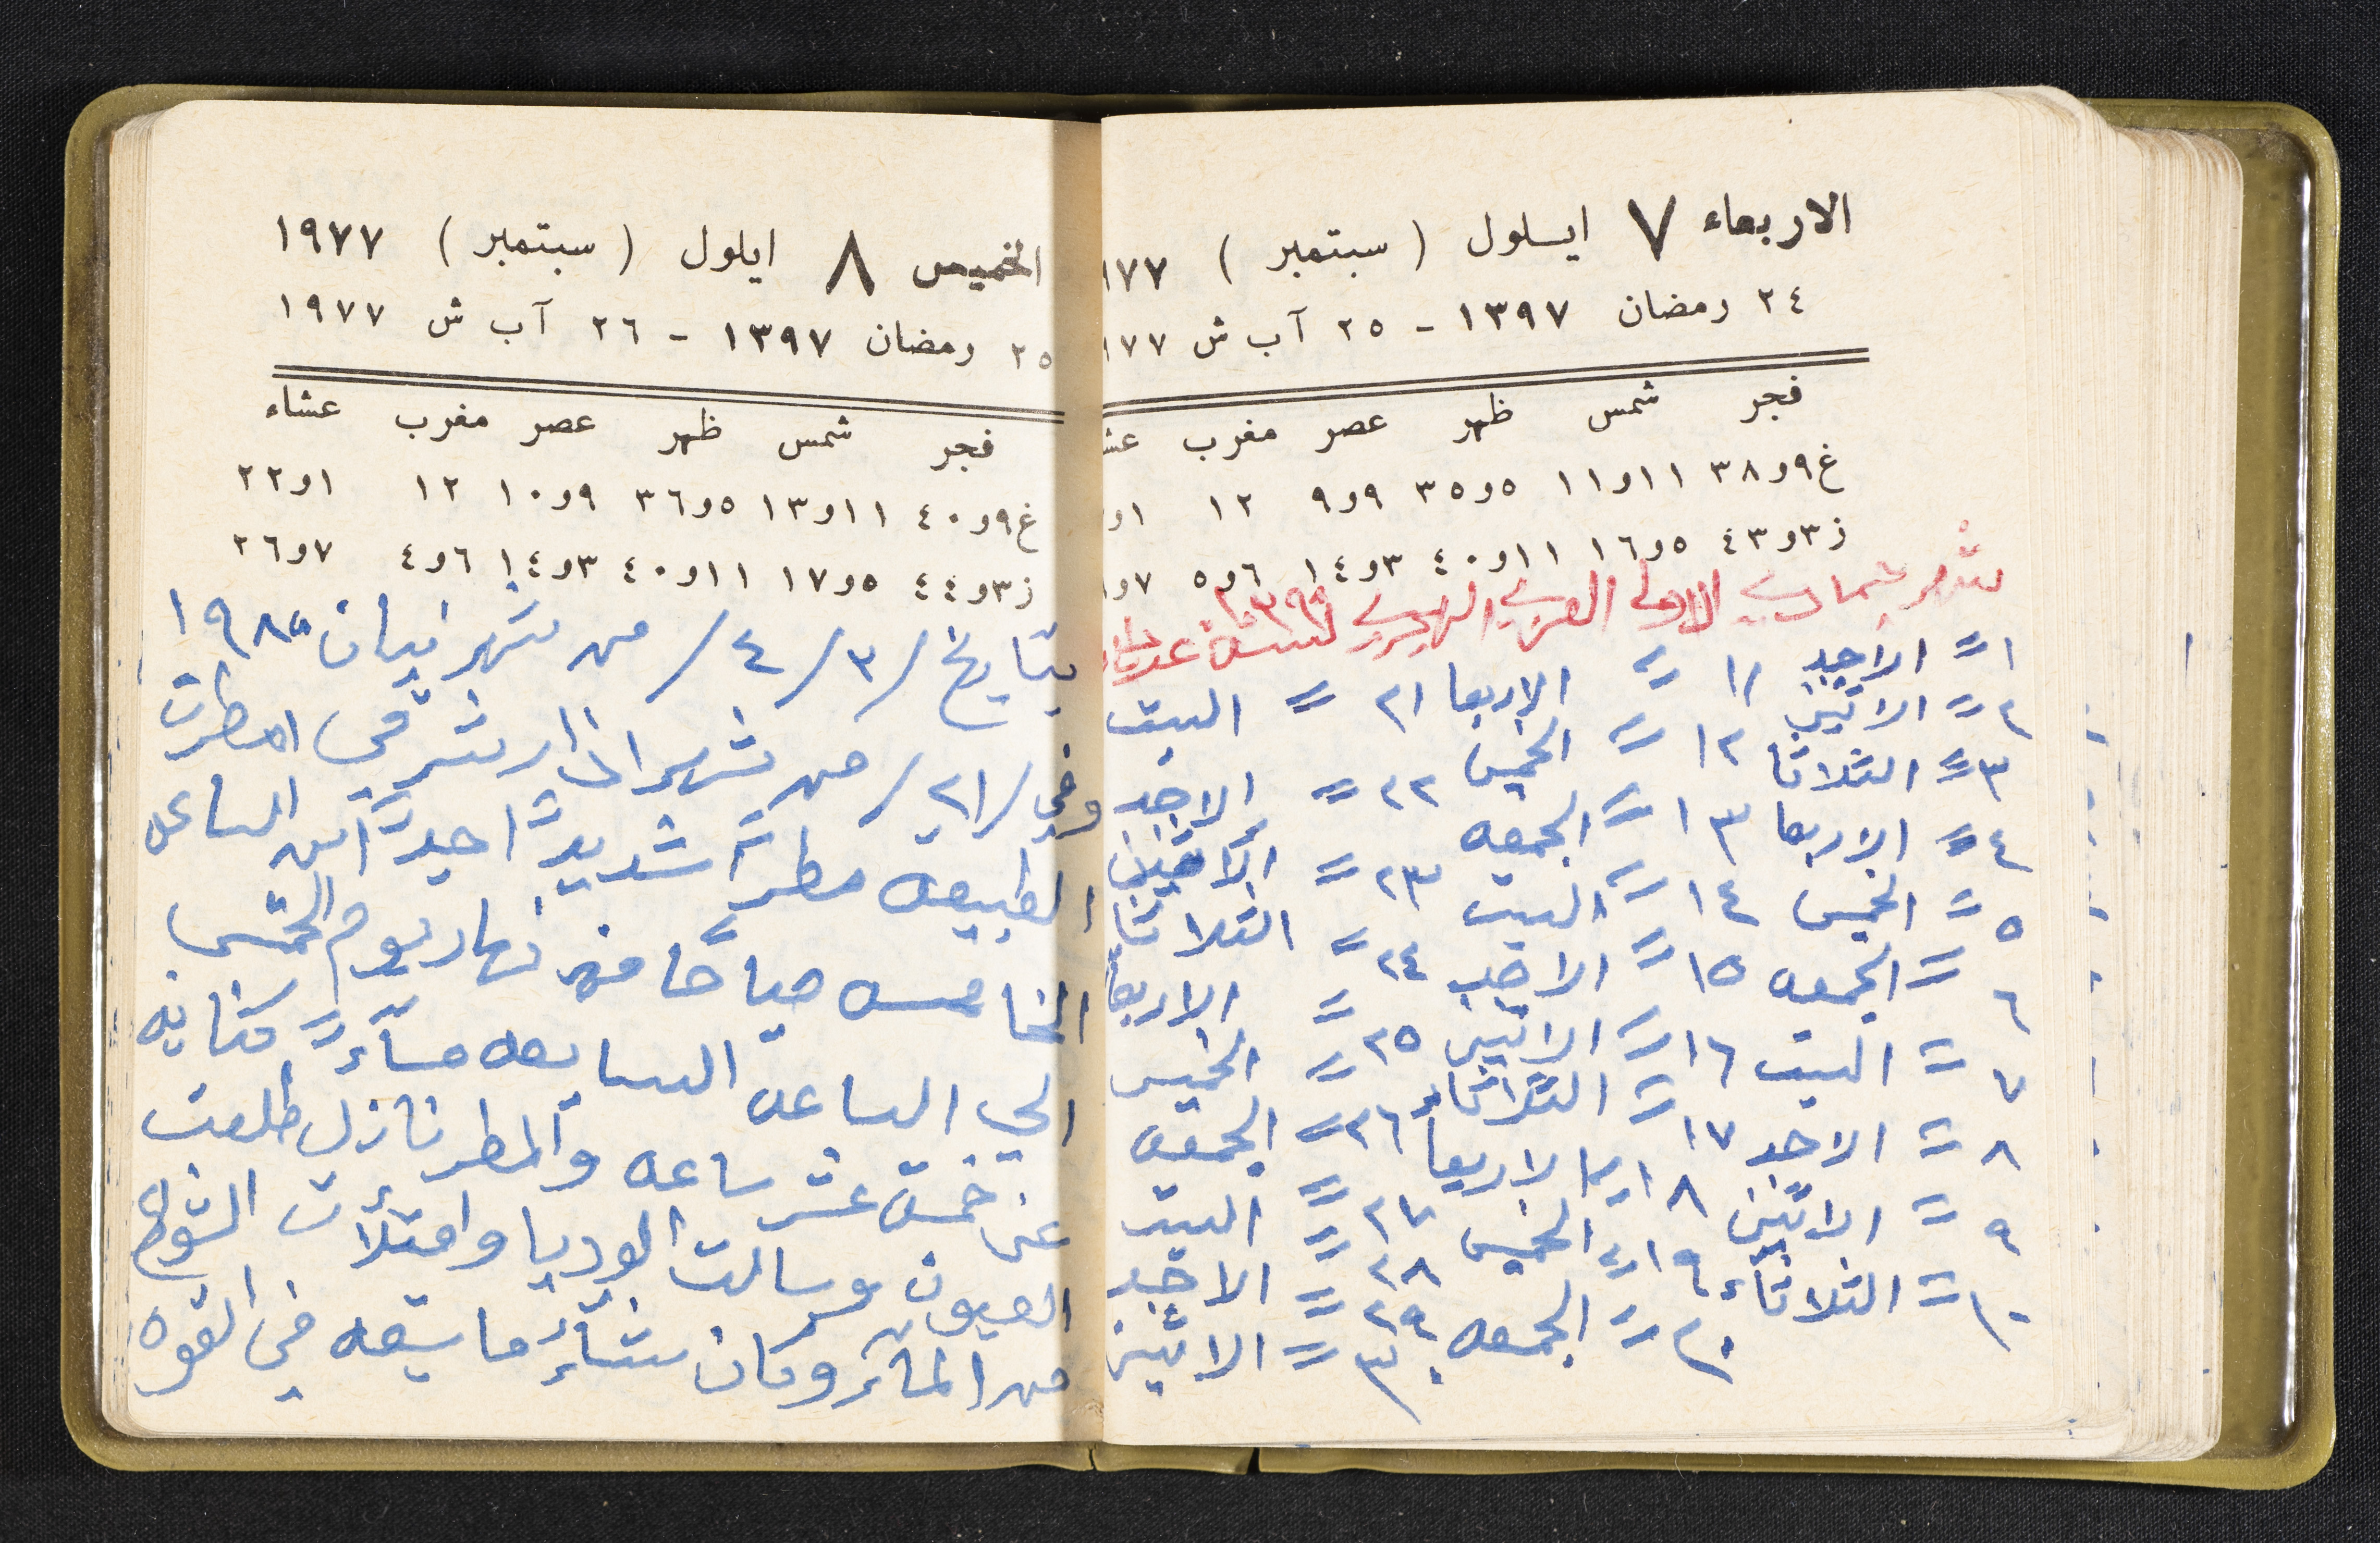 الاربعاء ٧ ايسلول ( سبتمبر ) ١٧٧
٢٤ رمضان ١٣٩٧ - ٢٥ آب ش ١٧٧
فجر شمس ظهر عصر مغرب عش
غ٩و٣٨ ١١و١١ ٥و٣٥ ٩و٩ ١٢ ١و
ز٣و٤٣ ٥و١٦ ١١و٤٠ ٣و١٤ ٦و٥ ٧و
شهر جمادى الاولى العربي الهجري لسنة
١ = الاحد ١١ = الاربعا ٢١ = السبت
٢ = الاثنين ١٢ = الخميس ٢٢ = الاحد
٣ = الثلاثا ١٣ = الجمعه ٢٣ = الاثنين
٤ = الاربعا ١٤ = السبت ٢٤ = الثلاثا
٥ = الخميس ١٥ = الاحد ٢٥ = الاربعا
٦ = الجمعه ١٦ = الاثنين = الخميس
٧ = السبت ١٧ = الثلاثاء ٢٦ = الجمعه
٨ = الاحد ١٨ الاربعا ٢٧ = السبت
٩ = الاثنين ١٩ = الخميس ٢٨ = الاحد
١٠ = الثلاثاء ٢٠ = الجمعه ٢٩ ٣٠ = الاثنين
الخميس ٨ ايلول ( سبتمبر ) ١٩٧٧
٢٥ رمضان ١٣٩٧ - ٢٦ آب ش ١٩٧٧
فجر شمس ظهر عصر مغرب عشاء
غ٩و٤٠ ١١و١٣ ٥و٣٦ ٩و١٠ ١٢ ١و٢٢
ز٣و٤٤ ٥و١٧ ١١و٤٠ ٣و١٤ ٦و٤ ٧و٢٦
بتاريخ /٣/ ٤/ من شهر نيسان ١٩٨٥
وفي /٢١/ من شهر اذار شرقي امطرت
الطبيعه مطراً شديداً جداً من الساعه
الخامسه صباحاً من نهار يوم الخميس
الى الساعه السابعه مساءً كنايه
عن خمسة عشر ساعه والمطر نازل طلعت
العيون وسالت الوديا وامتلأت الشواط
من الماء وكان شتاءً ما سبقه في القوه